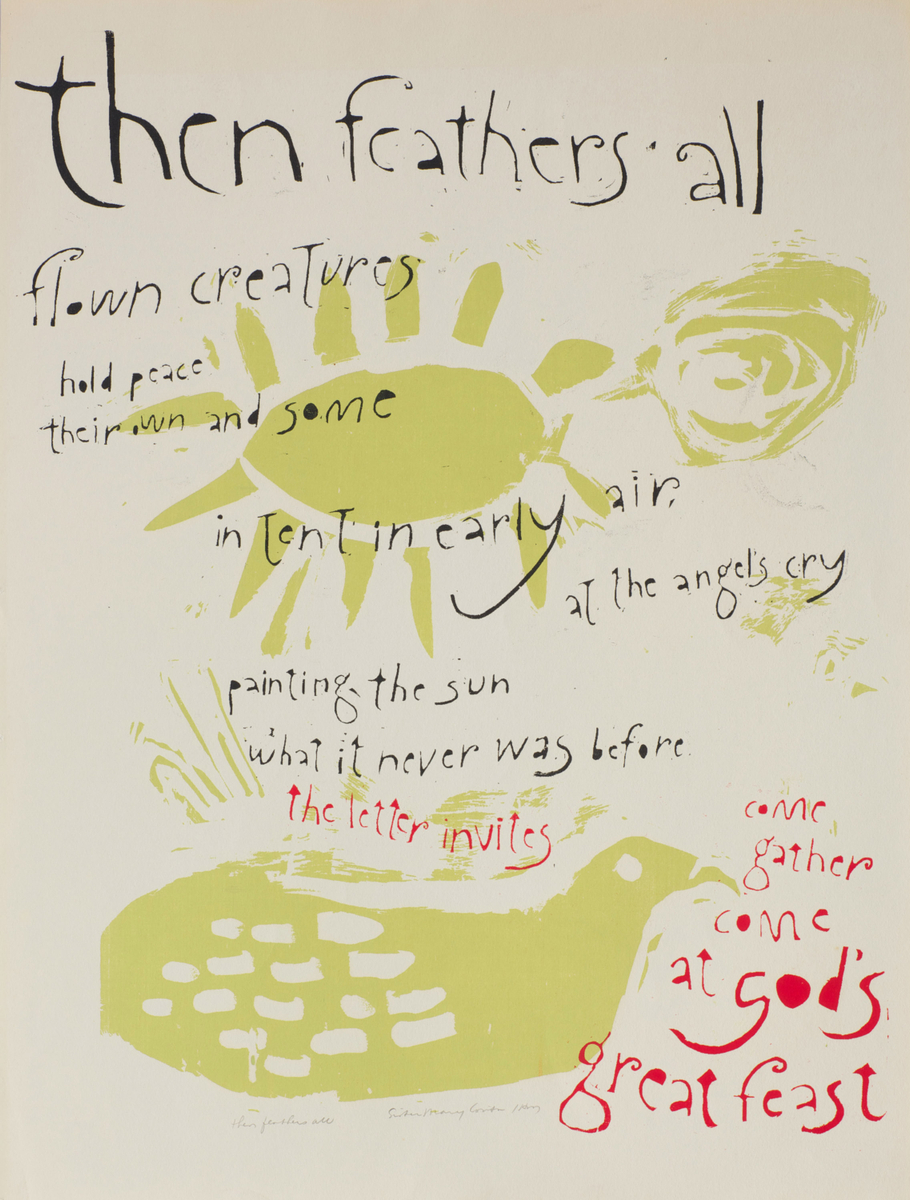 then feathers all
flown creatures
hold peace
their own and some
in tent in early air,
at the angel's cry
painting the sun
what it never was before.
the letter invites
come
gather
come
at god's
great feast
then feathers all